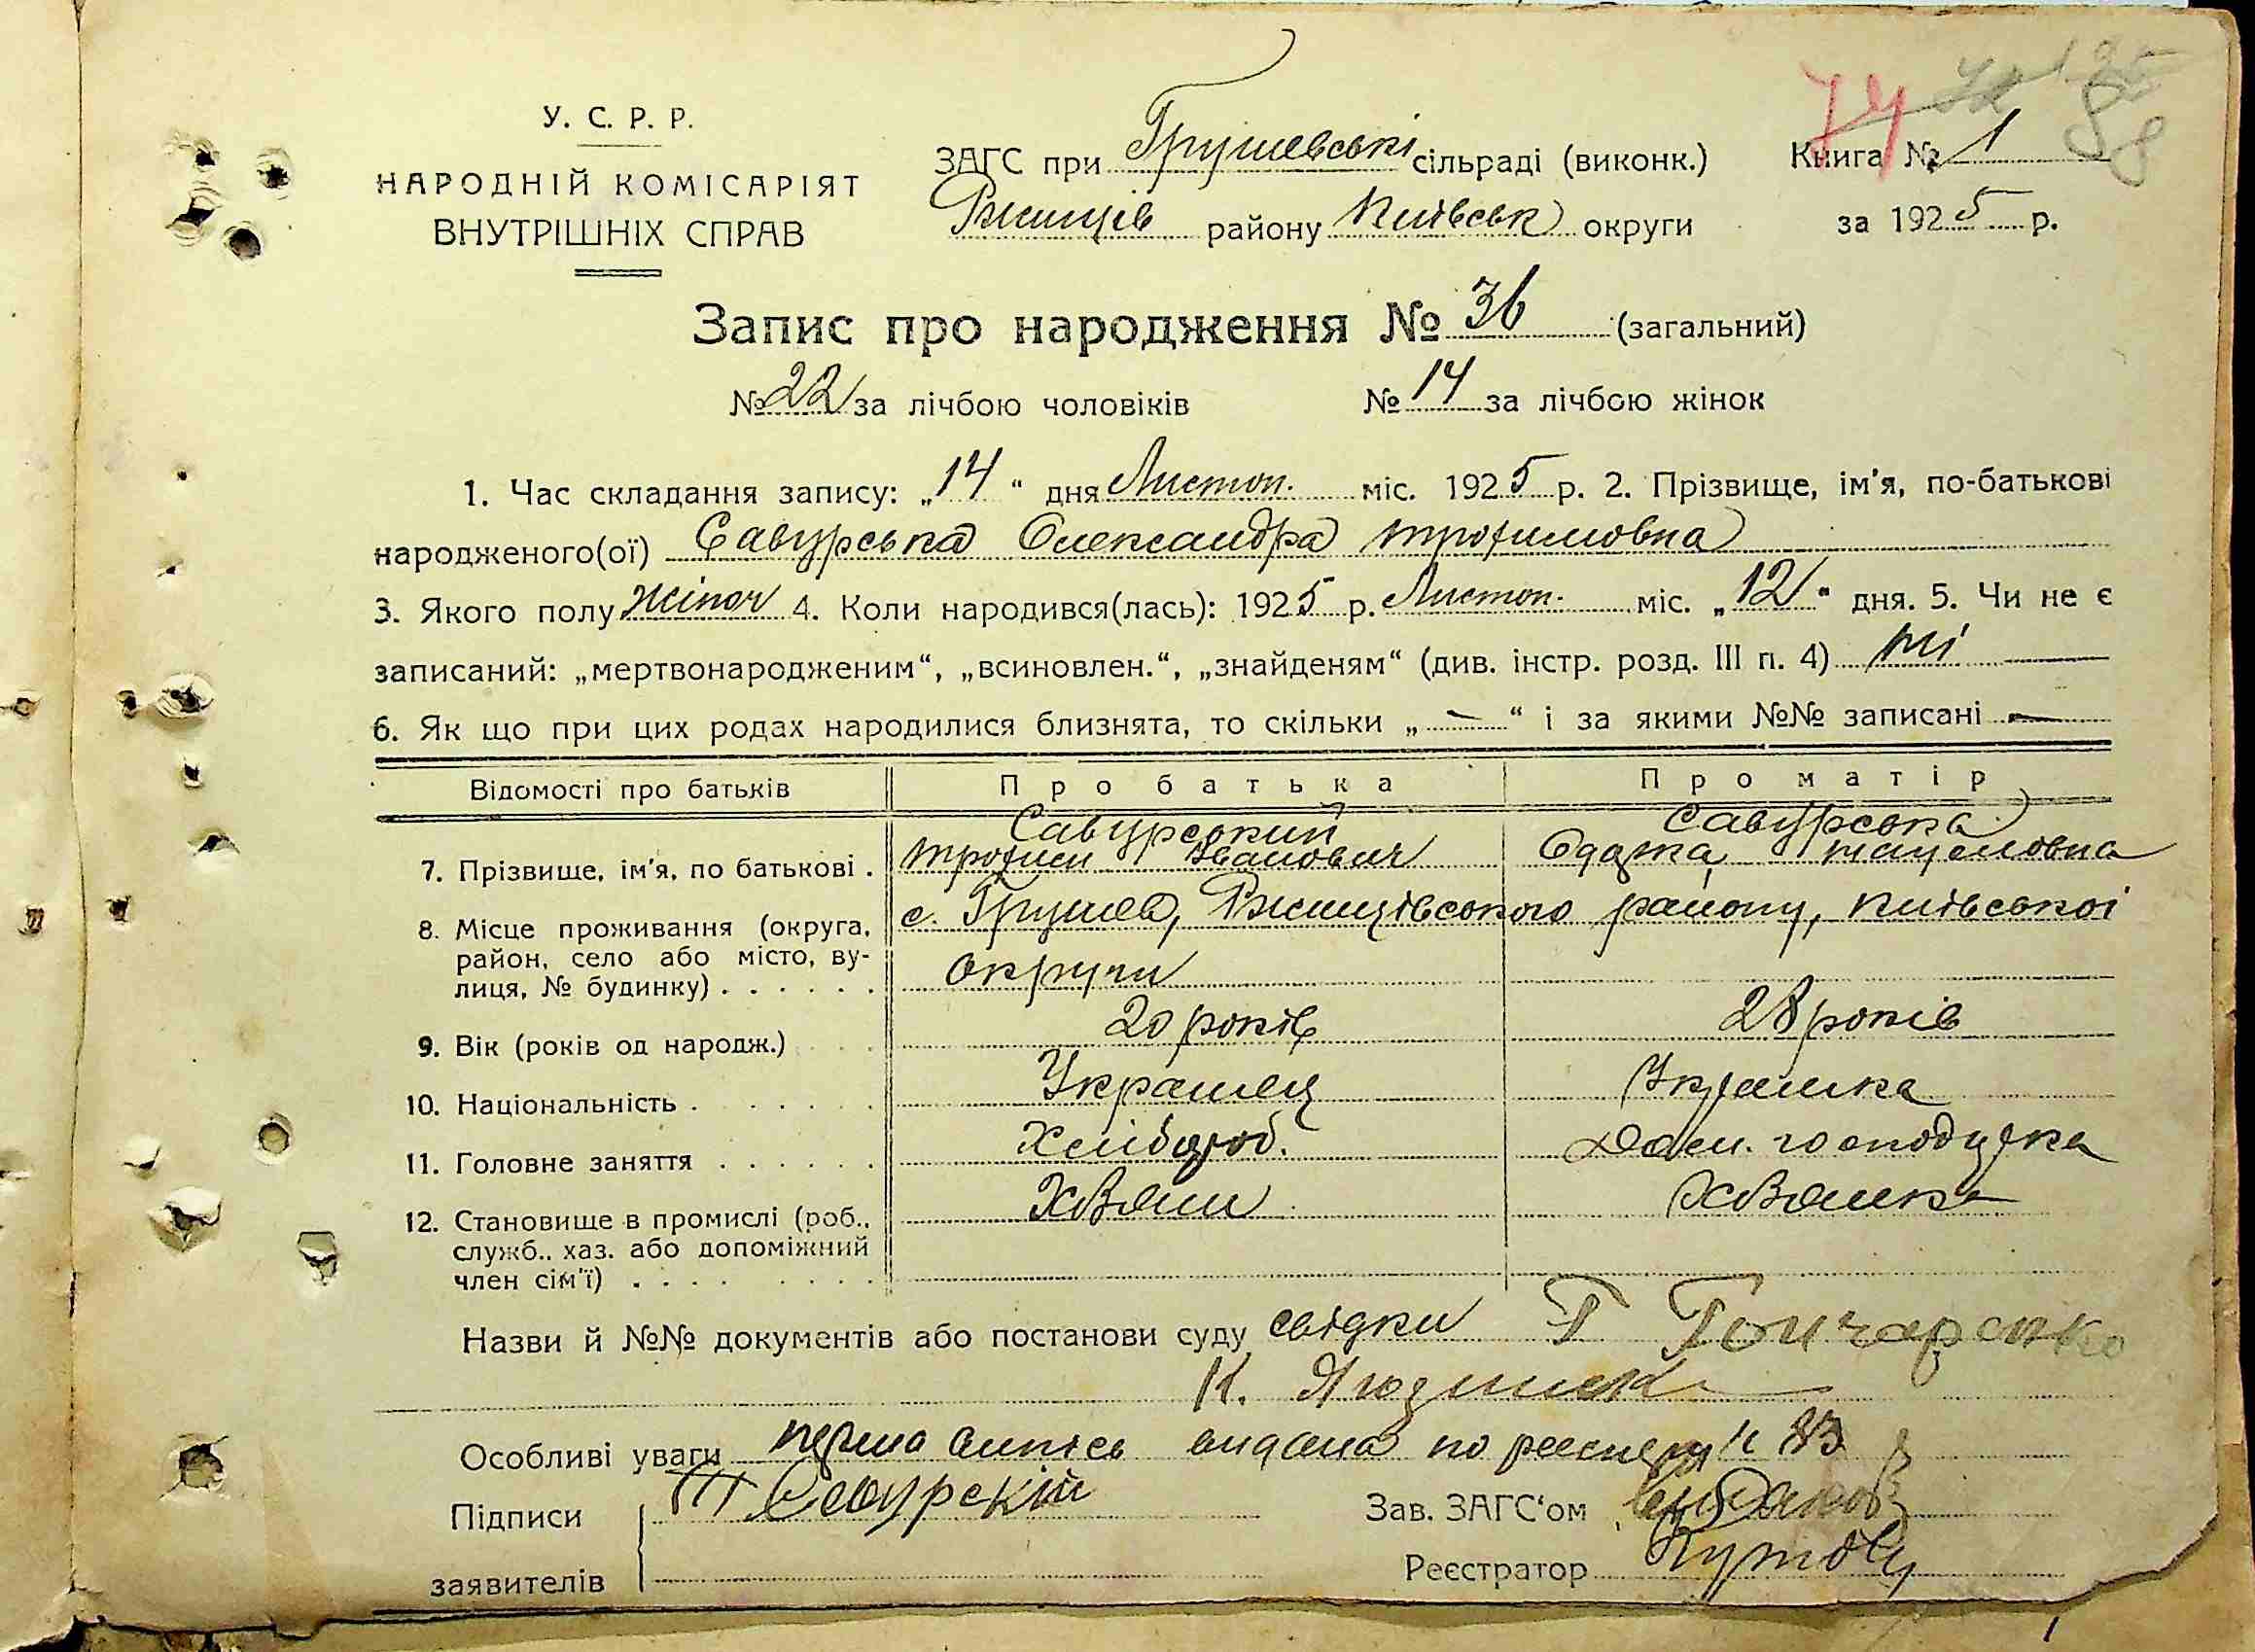 74 72 135
88
У. С. Р. Р.
НАРОДНІЙ КОМІСАРІЯТ
ВНУТРІШНІХ СПРАВ
ЗАГС при Грушевські сільраді (виконк.) Книга № 1
Ржищів району Київськ округи за 1925 р.
Запис про народження № 36 (загальний)
№ 22 за лічбою чоловіків № 14 за лічбою жінок
1. Час складання запису: „14“ дня Листоп. міс. 1925 р. 2. Прізвище, ім'я, по-батькові
народженого(ої) Савурська Олександра Трофимовна
3. Якого полу жіноч 4. Коли народився(лась): 1925 р. Листоп. міс. „12“ дня. 5. Чи не є
записаний: „мертвонародженим“, „всиновлен.“, „знайденям“ (див. інстр. розд. III п. 4) ні
6. Як що при цих родах народилися близнята, то скільки „ — “ і за якими №№ записані —
Відомості про батьків Про батька Про матір
Савурский Савурська
7. Прізвище, ім'я, по батькові . Трофим Іванович
8. Місце проживання (округа, район, село або місто, вулиця, № будинку) с. Грушев, Ржищівського району, Київської
округи
9. Вік (років од народж.) 20 років 28 років
10. Національність . Украінец Українка
11. Головне заняття Хлібороб. Дом. господарка
12. Становище в промислі (роб.,
служб., хаз. або допоміжний
член сім'ї)
Назви й №№ документів або постанови суду свідки Г Гончаренко
К.
Особливі уваги перша випись видана по реестру № 83
Підписи Т Савурскій Зав. ЗАГС'ом
заявителів Реєстратор